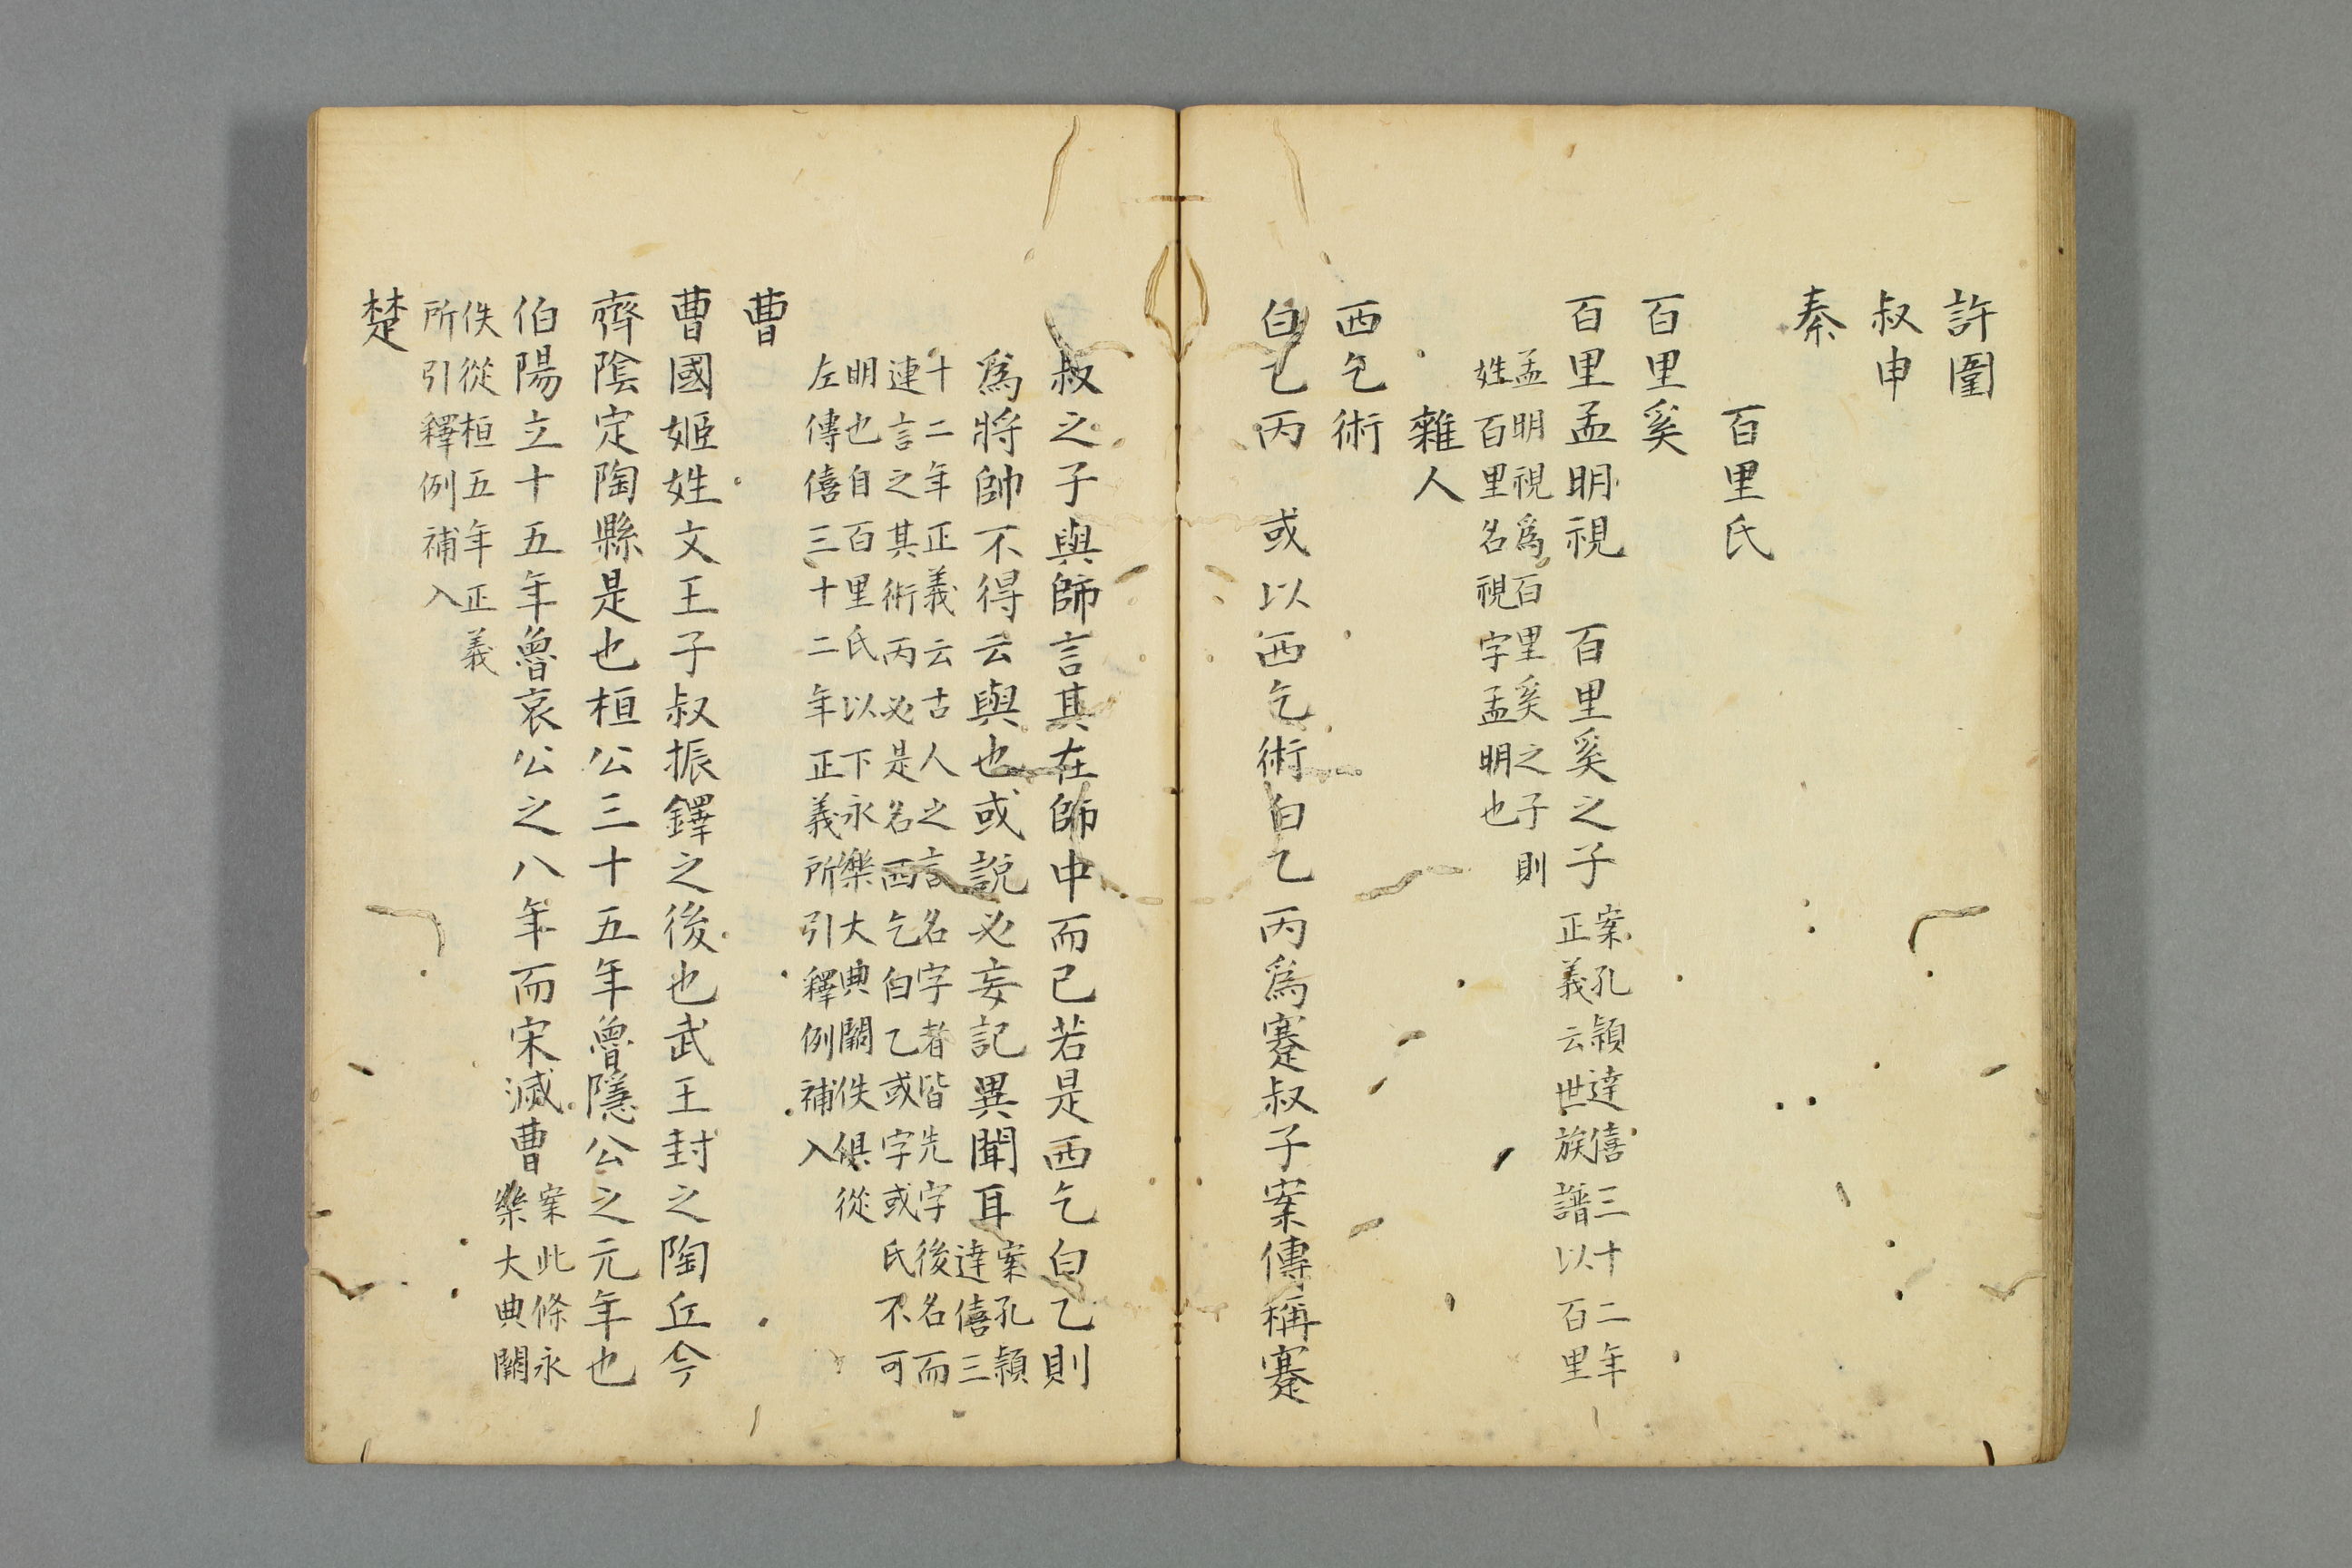 許圍
叔申
秦
百里氏
百里奚
百里孟明視　百里奚之子
案孔頴達僖三十二年
正義云世族譜以百里
孟明視爲百里奚之子則
姓百里名視字孟明也
雜人
西乞術
白乙丙　或以西乞術白乙丙爲蹇叔子案傳稱蹇
叔之子與師言其在師中而已若是西乞白乙則
爲將帥不得云與也或説必妄記異聞耳
案孔頴
達僖三
十二年正義云古人之言名字者皆先字後名而
連言之其術丙必是名西乞白乙或字或氏不可
明也自百里氏以下永樂大典闕佚俱從
左傳僖三十二年正義所引釋例補入
曹
曹國姬姓文王子叔振鐸之後也武王封之陶丘今
齊陰定陶縣是也桓公三十五年魯隱公之元年也
伯陽立十五年魯哀公之八年而宋滅曹
案此條永
樂大典闕
佚從桓五年正義
所引釋例補入
楚